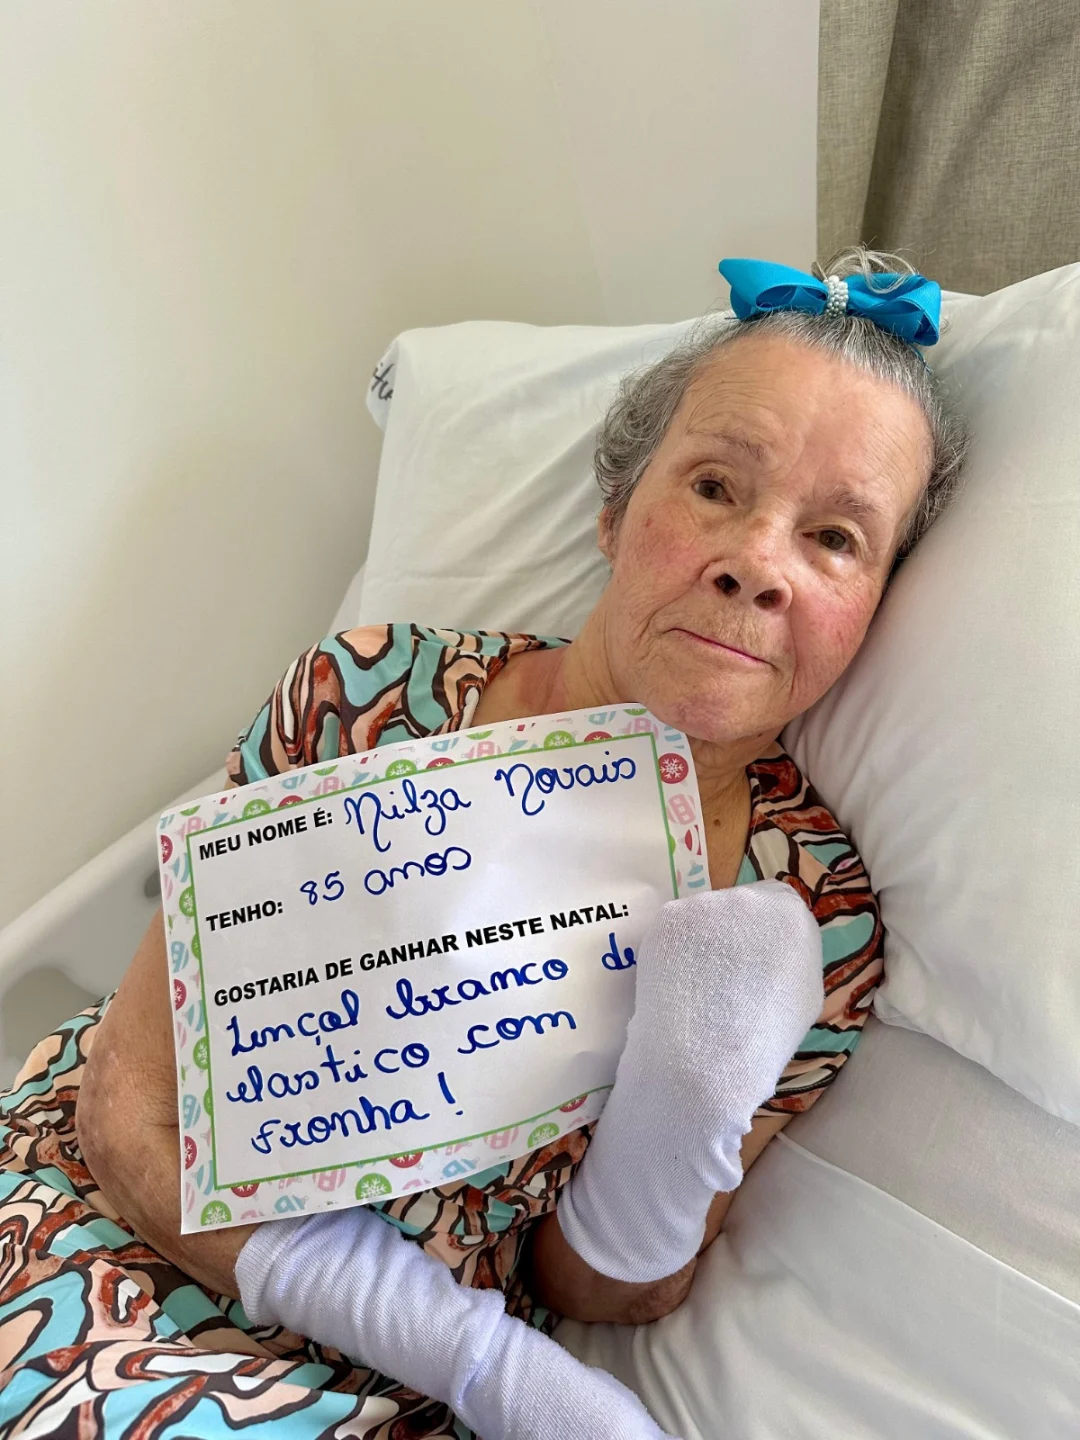 MEU NOME É: Nilza Novais
TENHO: 85 anos
GOSTARIA DE GANHAR NESTE NATAL:
Lençol branco de
elastico com
Fronha!